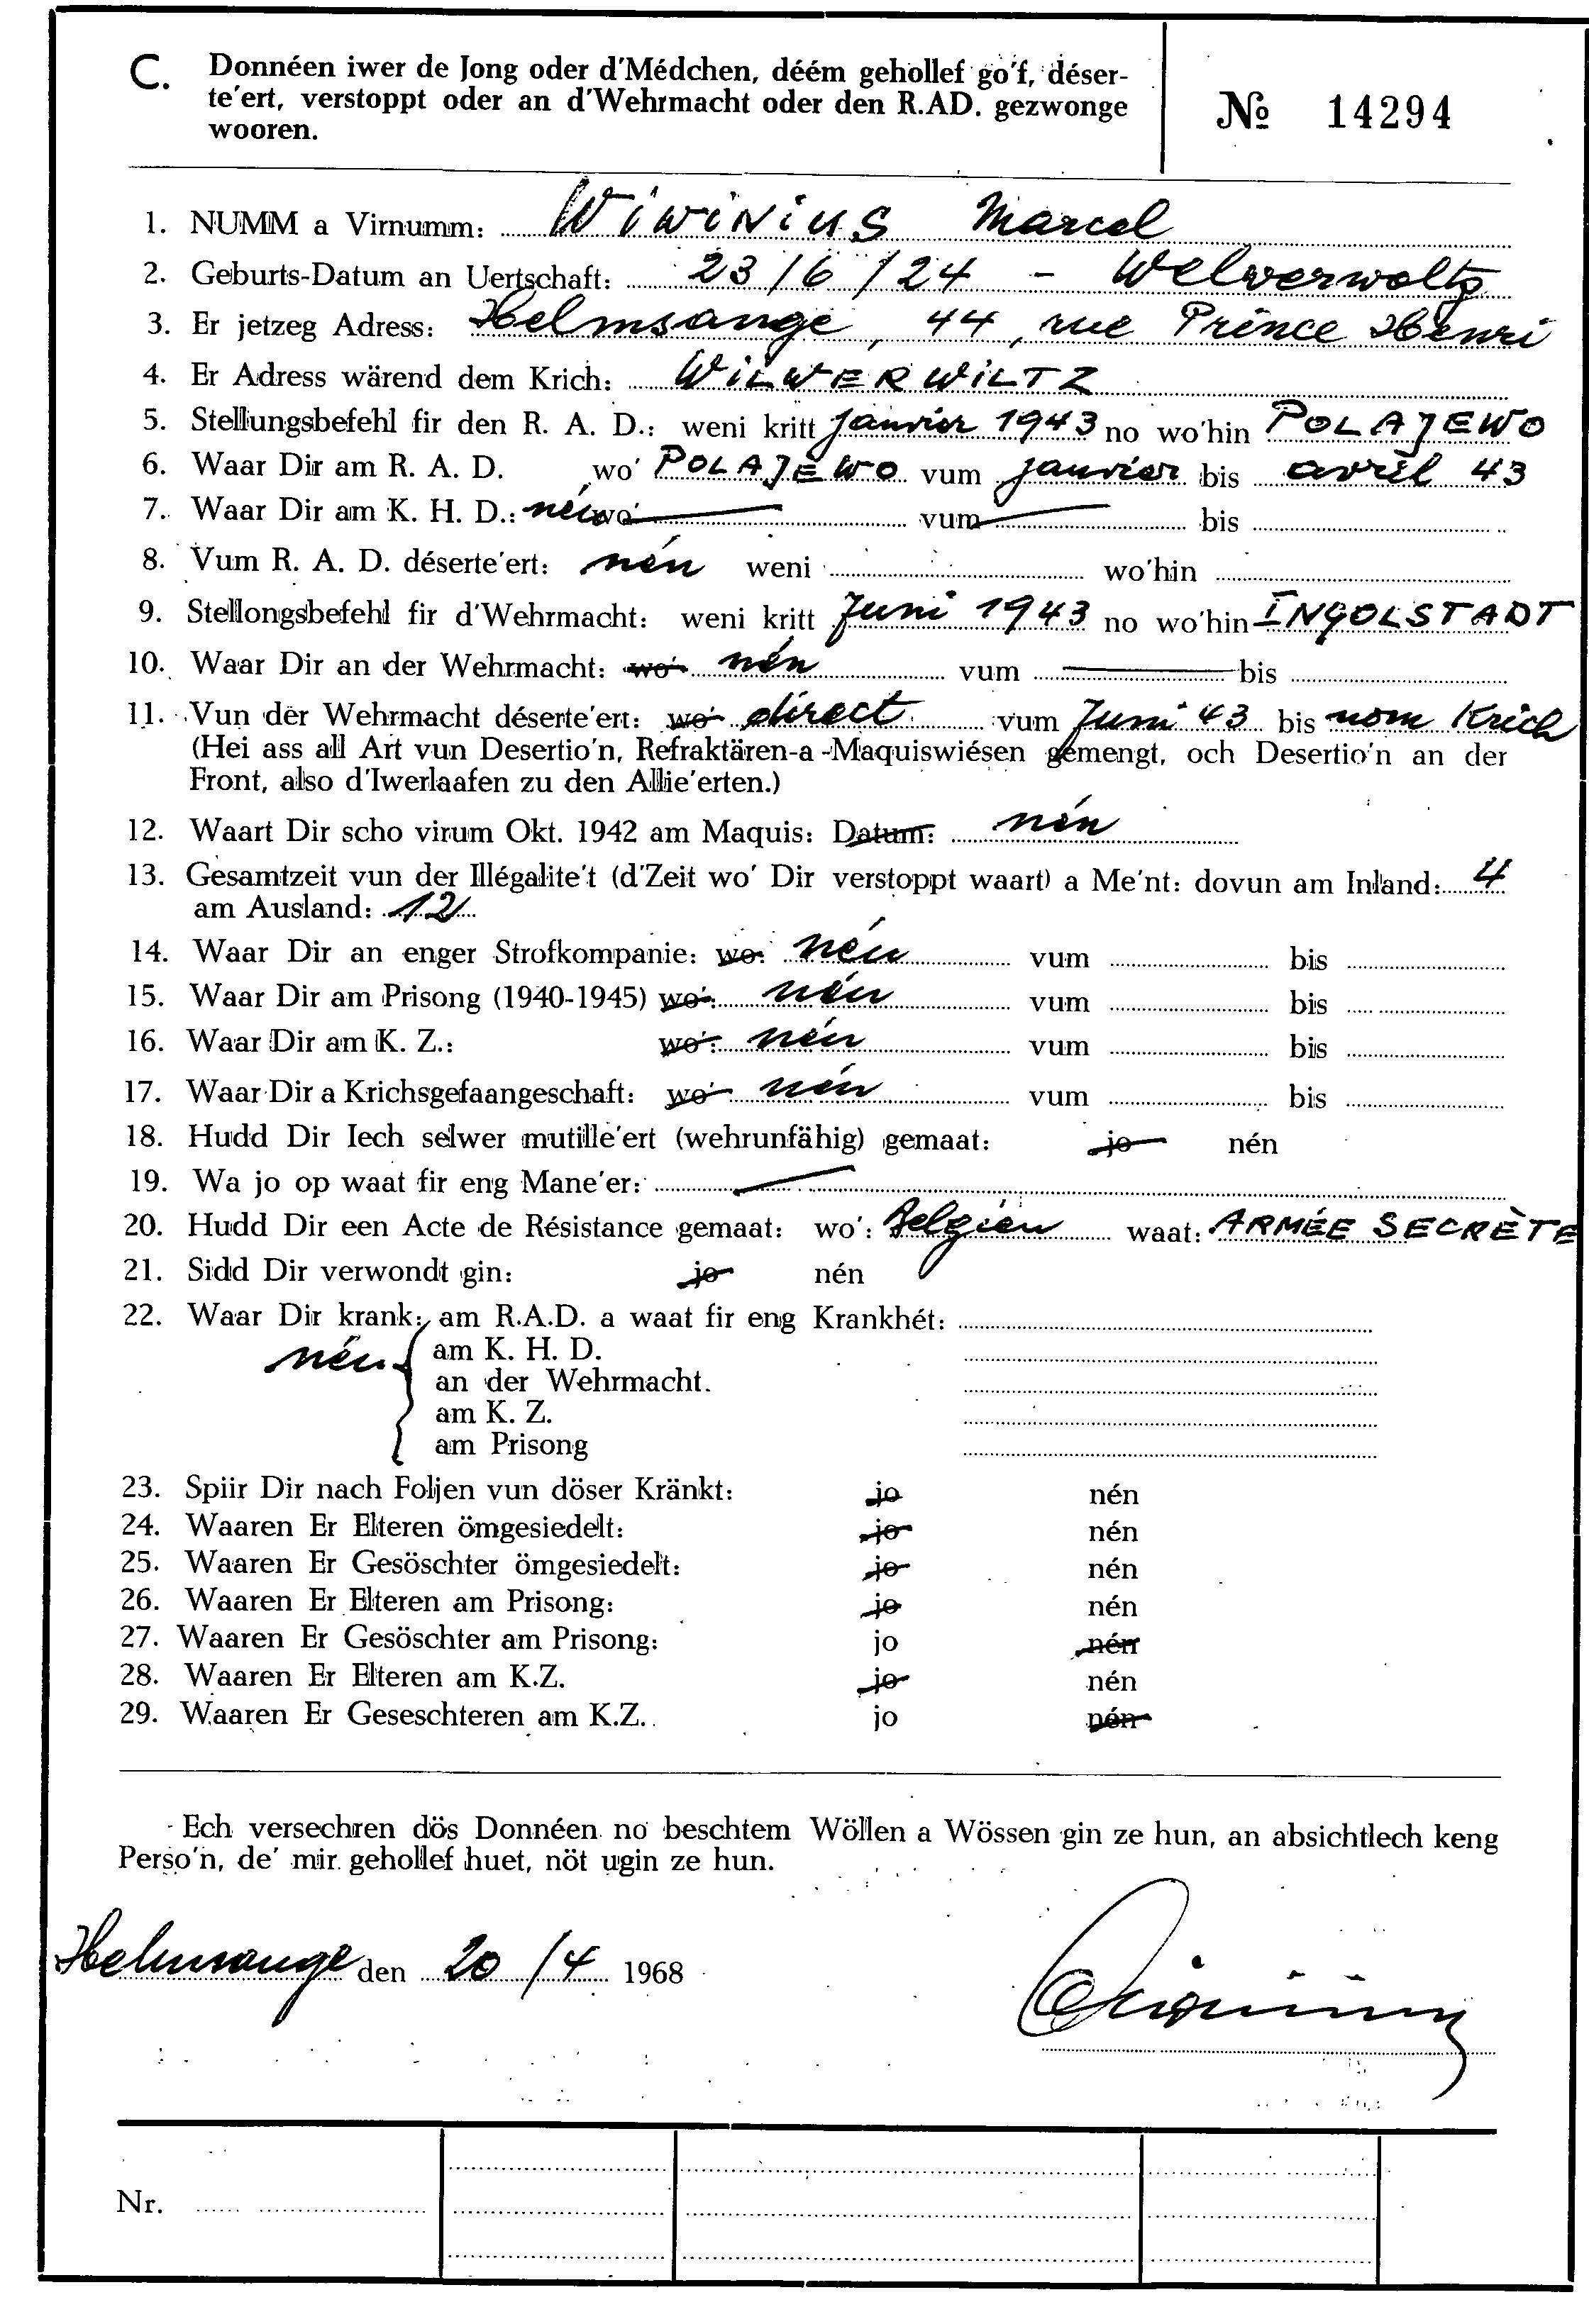 C. Donnéen iwer de Jong oder d'Médchen, déém gehollef go'f, déser-
te'ert, verstoppt oder an d'Wehrmacht oder den R.AD. gezwonge
wooren.
№ 14294
1. NUMM a Virnumm: WiWiNiUS Marcel
2. Geburts-Datum an Uertschaft: 23/6/24 - Welverwoltz
3. Er jetzeg Adress: Helmsange, 44, rue Prince Henri
4. Er Adress wärend dem Krich: WiLWERWiLTZ
5. Stellungsbefehl fir den R. A. D.: weni kritt janvier 1943 no wo'hin POLAJEWO
6. Waar Dir am R. A. D. wo' POLAJEWO vum janvier bis avril 43
7. Waar Dir am K. H. D.: nén wo' vum bis
8. Vum R. A. D. déserte'ert: nén weni wo'hin
9. Stellongsbefehl fir d'Wehrmacht: weni kritt Juni 1943 no wo'hin INGOLSTADT
10. Waar Dir an der Wehrmacht: wo' nén vum bis
11. Vun der Wehrmacht déserte'ert: wo' direct vum Juni 43 bis nom Krich
(Hei ass all Art vun Desertio'n, Refraktären-a -Maquiswiésen gemengt, och Desertio'n an der
Front, also d'Iwerlaafen zu den Allie'erten.)
12. Waart Dir scho virum Okt. 1942 am Maquis: Datum: nén
13. Gesamtzeit vun der Illégalite't (d'Zeit wo' Dir verstoppt waart) a Me'nt: dovun am Inland: 4
am Ausland: 12
14. Waar Dir an enger Strofkompanie: wo: nén vum bis
15. Waar Dir am Prisong (1940-1945) wo': nén vum bis
16. Waar Dir am K. Z.: wo': nén vum bis
17. Waar Dir a Krichsgefaangeschaft: wo' nén vum bis
18. Hudd Dir Iech selwer mutille'ert (wehrunfähig) gemaat: jo nén
19. Wa jo op waat fir eng Mane'er:
20. Hudd Dir een Acte de Résistance gemaat: wo': Belgien waat: ARMÉE SECRÈTE
21. Sidd Dir verwondt gin: jo nén
22. Waar Dir krank: am R.A.D. a waat fir eng Krankhét:
nén am K. H. D.
an der Wehrmacht.
am K. Z.
am Prisong
23. Spiir Dir nach Foljen vun döser Kränkt: jo nén
24. Waaren Er Elteren ömgesiedelt: jo nén
25. Waaren Er Gesöschter ömgesiedelt: jo nén
26. Waaren Er Elteren am Prisong: jo nén
27. Waaren Er Gesöschter am Prisong: jo nén
28. Waaren Er Elteren am K.Z. jo nén
29. Waaren Er Geseschteren am K.Z. jo nén
Ech versechren dös Donnéen no beschtem Wöllen a Wössen gin ze hun, an absichtlech keng
Perso'n, de' mir gehollef huet, nöt ugin ze hun.
Helmsange den 20/4 1968
Nr.